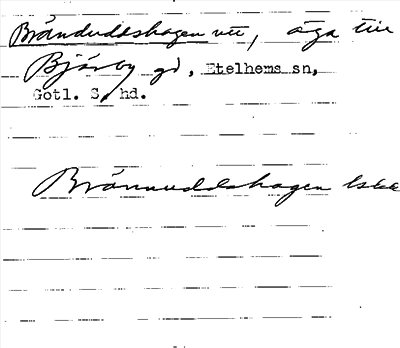 Bränduddshagen vtr, äga till
Bjärby gd, Etelhems sn,
Gotl. S. hd.
Brännuddshagen